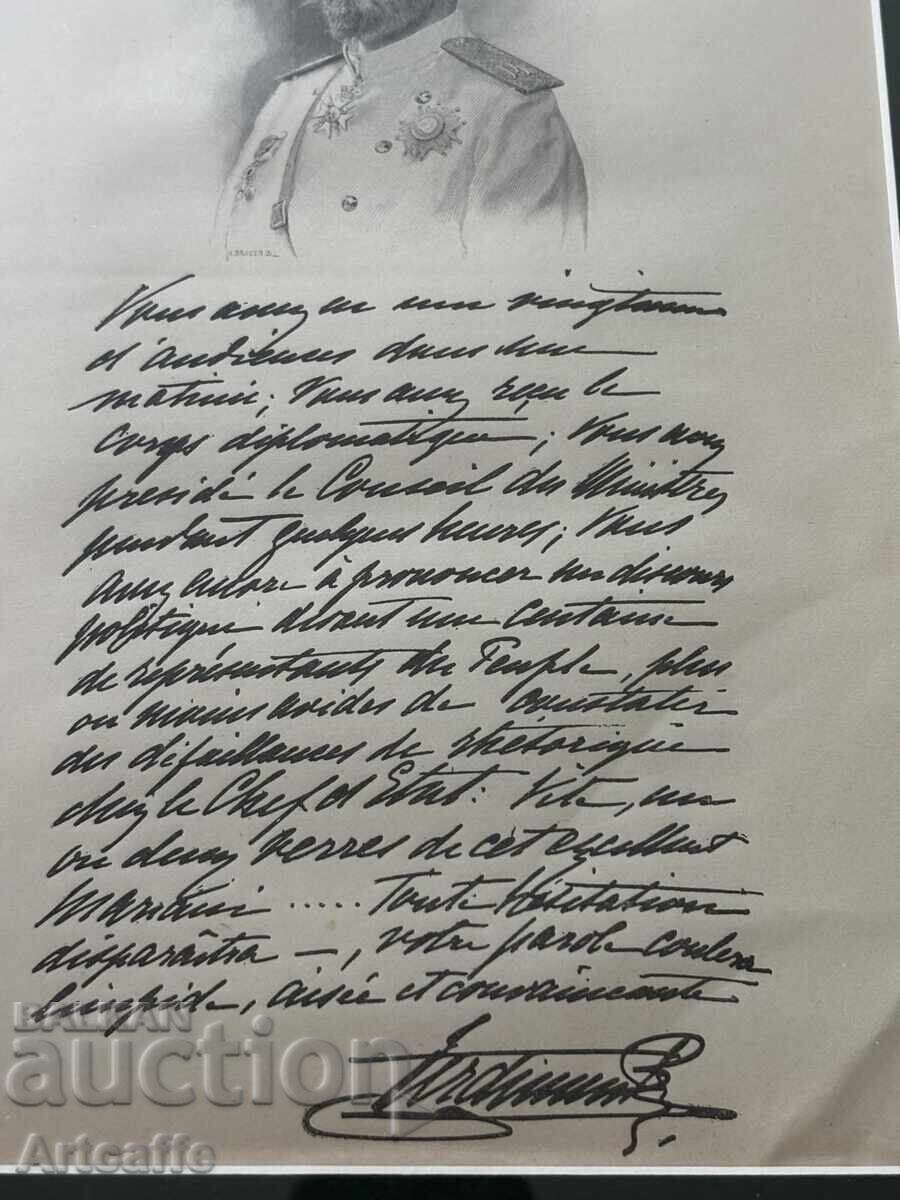 Vous avez eu une vingtaine
d'audiences dans une
matinée; Vous avez reçu le
corps diplomatique; Vous avez
présidé le Conseil des Ministres
pendant quelques heures; Vous
avez encore à prononcer un discours
politique devant une centaine
de représentants du Peuple, plus
ou moins avides de constater
des défaillances de rhétorique
chez le Chef d'Etat: Vite, un
ou deux verres de cet excellent
Mariani ..... Toute hésitation
disparaîtra —, votre parole coulera
limpide, aisée et convaincante
Ferdinand
BALKAN
auction
Artcaffe